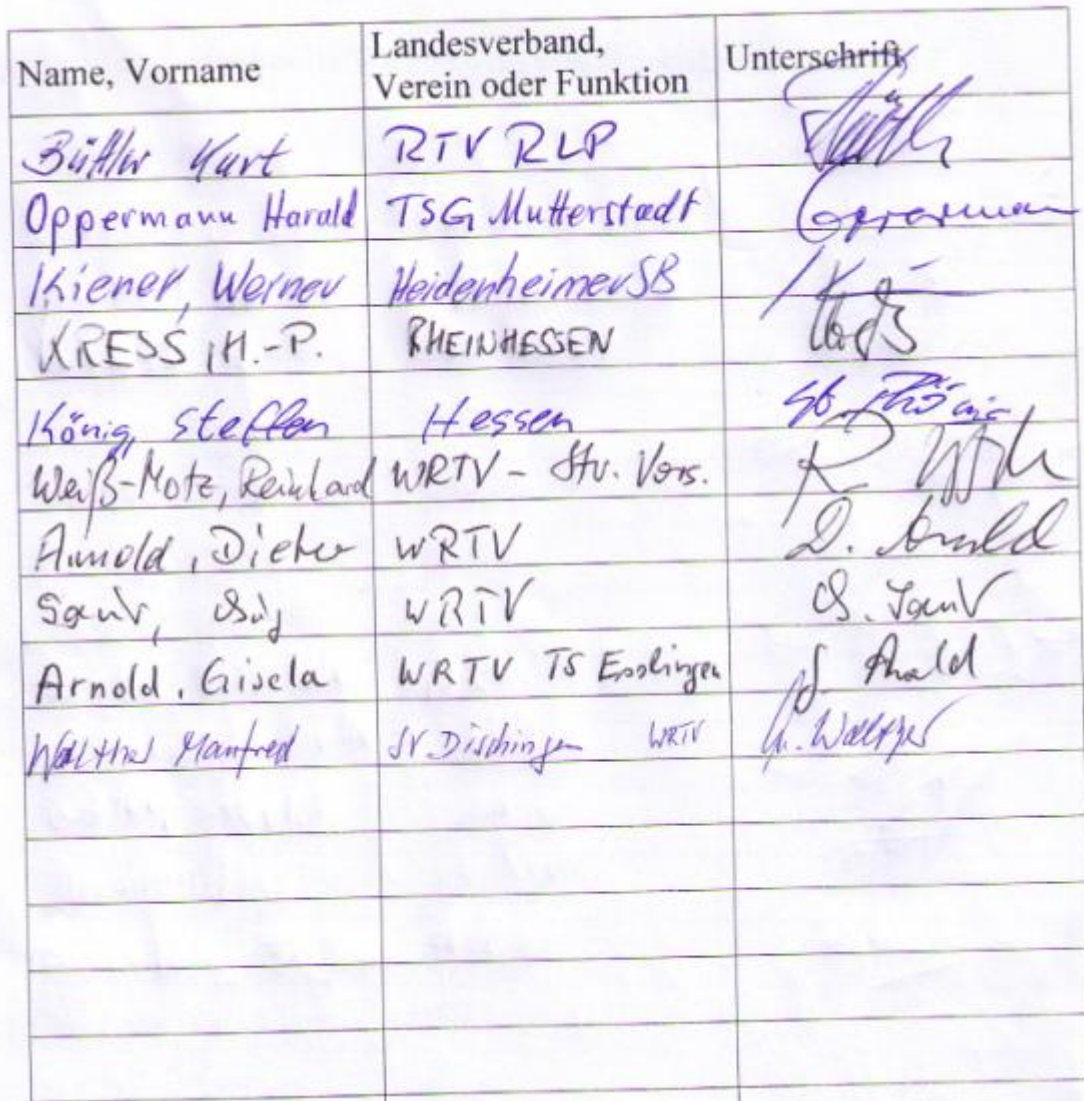 Name, Vorname
Landesverband,
Verein oder Funktion
Unterschrift
Kurt RTV RLP
Oppermann Harald TSG Mutterstadt Oppermann
Kiener, Werner Heidenheimer SB
KRESS, H.-P. RHEINHESSEN
König, Steffen Hessen St. König
Weiß-Motz, Reinhard WRTV - Stv. Vors. R
Arnold, Dieter WRTV D. Arnold
WRTV
Arnold, Gisela WRTV TS Esslingen Arnold
Walther Manfred SV Dischingen WRTV M. Walther